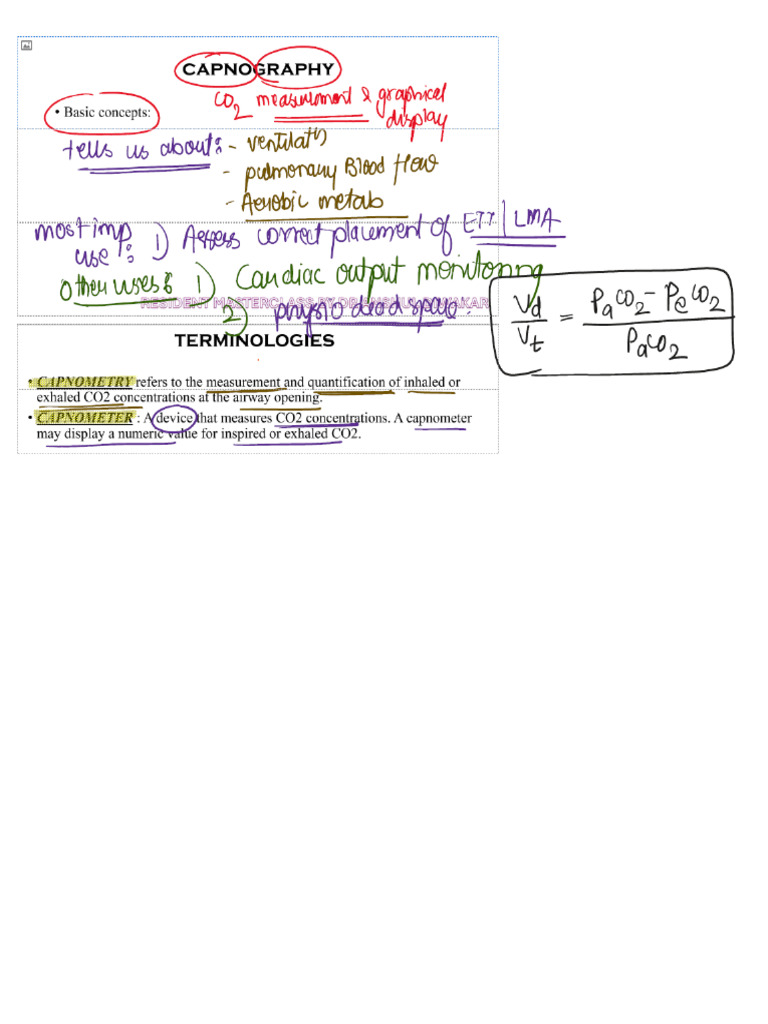 CAPNOGRAPHY
CO2 measurement & graphical display
• Basic concepts:
tells us about: - ventilatn
- pulmonary Blood flow
- Aerobic metab
most imp use: 1) Assess correct placement of ETT | LMA
Other uses: 1) Cardiac output monitoring
2) physio dead space.
Vd/Vt = PaCO2 - PeCO2 / PaCO2
RESIDENT MASTERCLASS BY DR
TERMINOLOGIES
• CAPNOMETRY refers to the measurement and quantification of inhaled or
exhaled CO2 concentrations at the airway opening.
• CAPNOMETER : A device that measures CO2 concentrations. A capnometer
may display a numeric value for inspired or exhaled CO2.